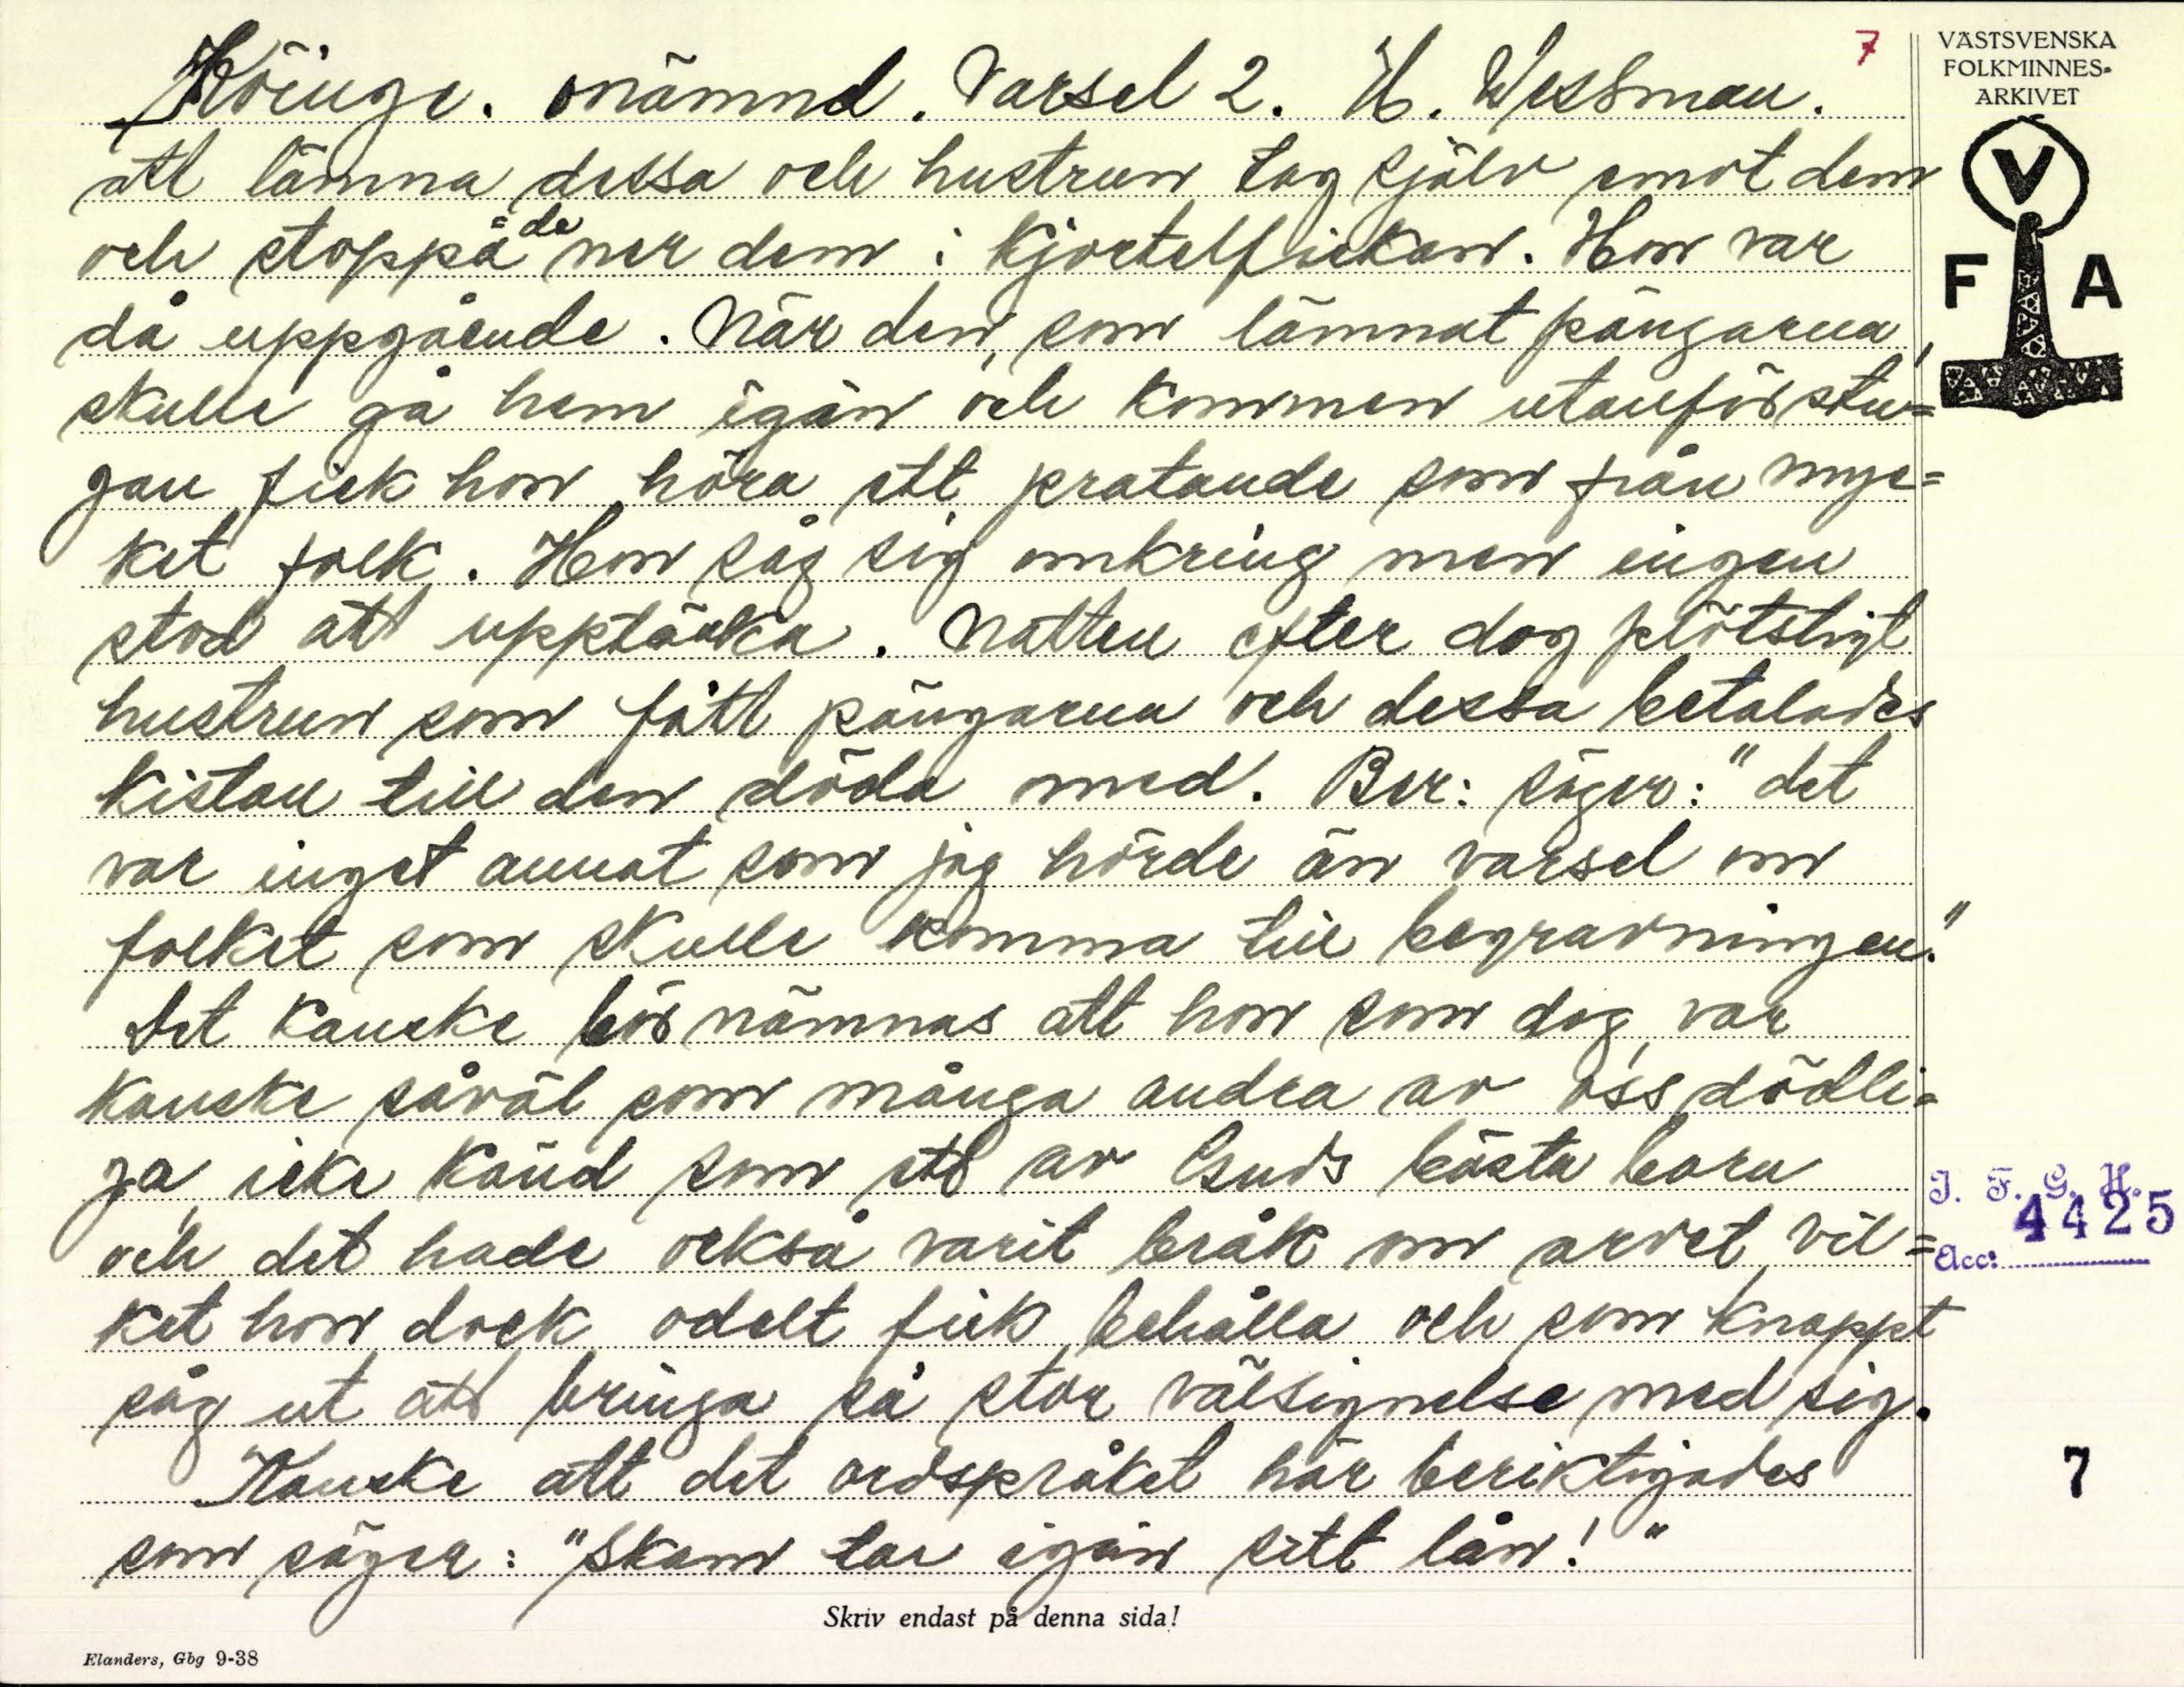 Köinge. onämnd. Varsel 2. H. Wessman.
7
VÄSTSVENSKA
FOLKMINNES-
ARKIVET
V
F A
att lämna dessa och hustrun tog själv emot dem
och stoppade ner dem i kjortelfickan. Hon var
då uppgående. När den, som lämnat pängarna,
skulle gå hem igän och kommen utanför stu=
gan fick hon höra ett pratande som från myc=
ket folk. Hon såg sig omkring men ingen
stod att upptäcka. Natten efter dog plötsligt
hustrun som fått pängarna och dessa betalades
kistan till den döda med. Ber: säger: "det
var inget annat som jag hörde än varsel om
folket som skulle komma till begravningen."
Det kanske bör nämnas att hon som dog, var
kanske såväl som många andra av oss dödli=
ga, icke känd som ett av Guds bästa barn
och det hade också varit bråk om arvet, vil=
ket hon dock odelt fick behålla och som knappt
såg ut att bringa så stor välsignelse med sig.
Kanske att det ordspråket här beriktigades
som säger: "Skam tar igän sitt lån!"
I. F. G. H.
Acc: 4425
7
Skriv endast på denna sida!
Elanders, Gbg 9-38